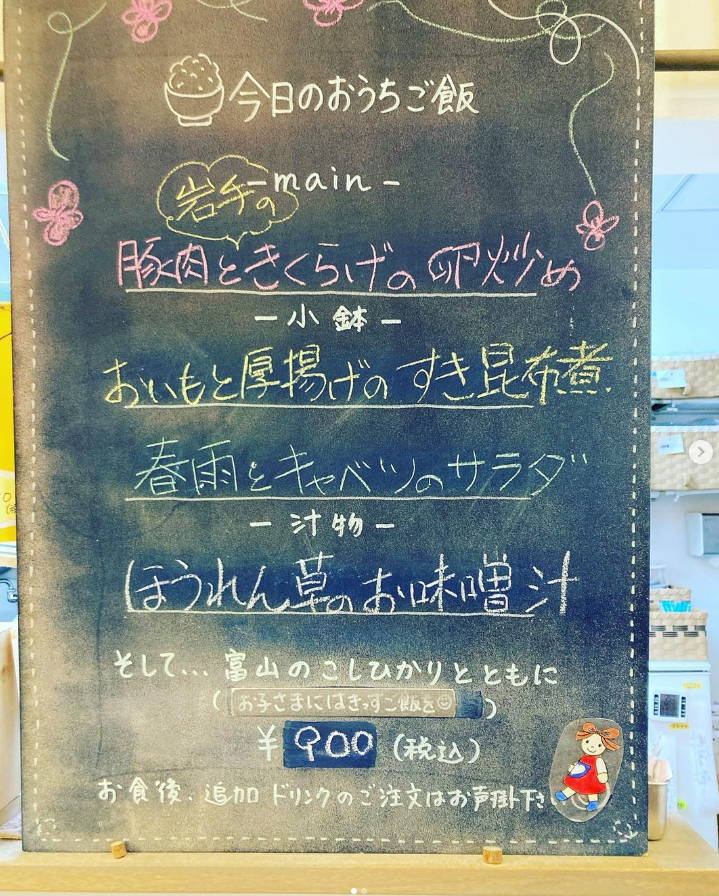 今日のおうちご飯
-main-
岩手の
豚肉ときくらげの卵炒め
-小鉢-
おいもと厚揚げのすき昆布煮
春雨とキャベツのサラダ
-汁物-
ほうれん草のお味噌汁
そして...富山のこしひかりとともに
(お子さまにはきっずご飯を☺)
¥900(税込)
お食後、追加ドリンクのご注文はお声掛下さい